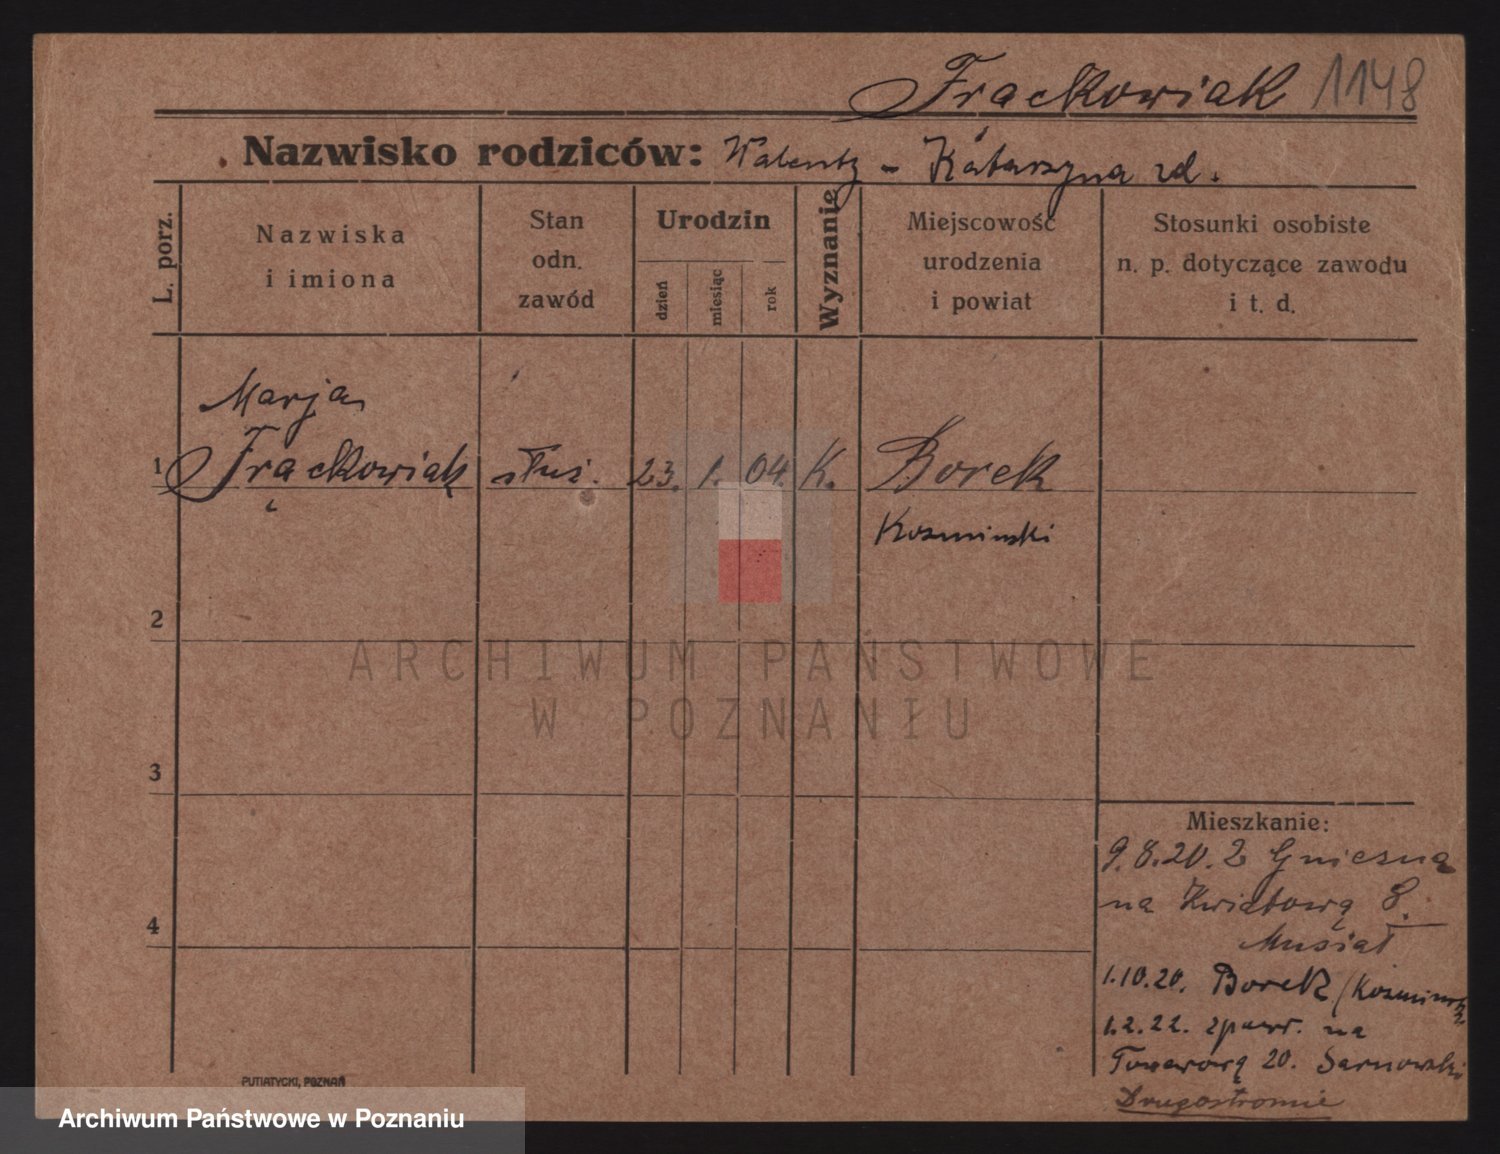 Frackowiak 1148
Nazwisko rodziców: Walenty - Katarzyna zd.
L. porz.
Nazwiska
i imiona
Stan
odn.
zawód
Urodzin
dzień
miesiąc
rok
Wyznanie
Miejscowość
urodzenia
i powiat
Stosunki osobiste
n. p. dotyczące zawodu
i t. d.
Marja
1 Frąckowiak służ. 23. 1. 04. K. Borek
Kozminski
2
ARCHIWUM PAŃSTWOWE
W POZNANIU
3
Mieszkanie:
9.8.20. Z Gniezna
na Kwiatową 8.
Musiał
4
1.10.20. Borek (Kozminsk
1.2.22. zpowr. na
Towarową 20. Sarnowski
Drugostronnie
PUTIATYCKI, POZNAŃ
Archiwum Państwowe w Poznaniu